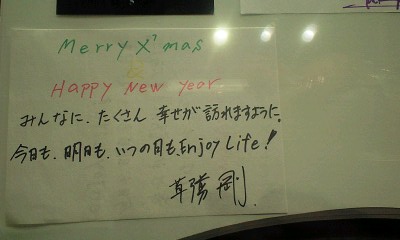 Merry X'mas
Happy New Year.
みんなに、たくさん 幸せが 訪れますように。
今日も、明日も、いつの日も、Enjoy Life!
草彅 剛